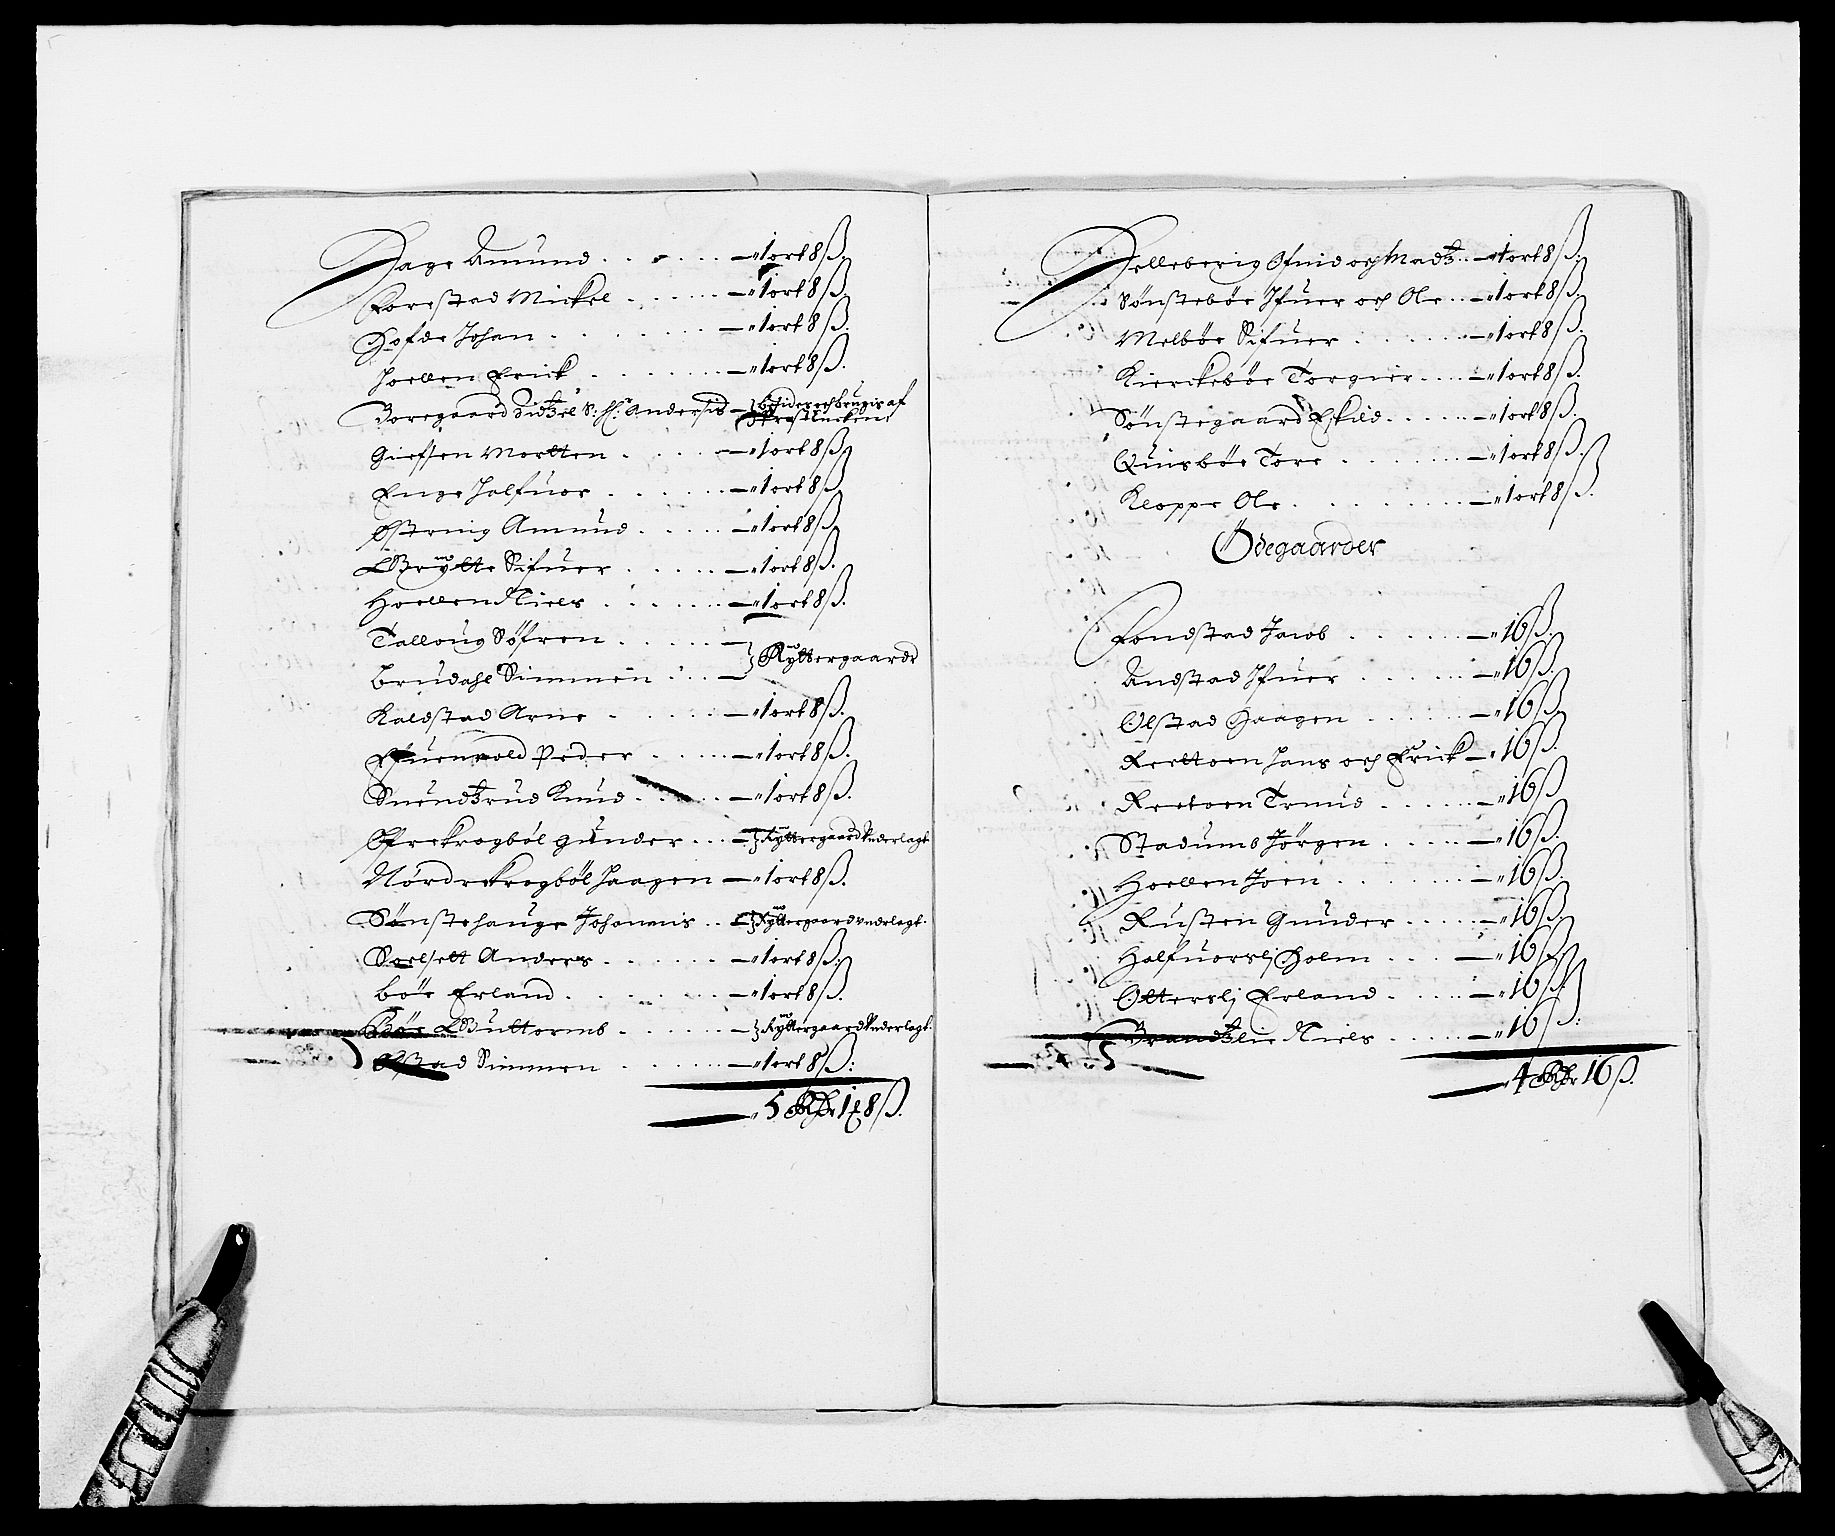 Hage Amund . . . . . . — „ 1 ort 8 ß.
Forestad Mickel . . . . . — „ 1 ort 8 ß.
Hofde Johan . . . . . . — „ 1 ort 8 ß.
Joellen Erick . . . . . . — „ 1 ort 8 ß.
Boregaard Anderss
Gieffsen Mortten . . . . — „ 1 ort 8 ß
Enge Halfuor . . . . . — „ 1 ort 8 ß
Østernig Amund . . . . . — „ 1 ort 8 ß
Grytte Sifuer . . . . . — „ 1 ort 8 ß.
Hoellen Niels . . . . . — „ 1 ort 8 ß.
Talloug Søfren . . . . . —
} Ryttergaarde
Brudahl Simmen . . . —
Kaldstad Arne . . . . . — „ 1 ort 8 ß.
Peder . . . . . — „ 1 ort 8 ß.
Suendtzrud Knud . . . . — „ 1 ort 8 ß.
Øfrekrogbøl Gunder . . . — } Ryttergaard Vnderlagt
Nørdrekrogbøl Haagen — „ 1 ort 8 ß.
Sønstehauge Johannis . . — } Ryttergaard vnderlagt.
Soelsett Anders . . . . . — „ 1 ort 8 ß.
Bøe Erland . . . . . . — „ 1 ort 8 ß.
Bøe Guttormb . . . . . — } Ryttergaard Vnderlagt.
Simmen . . . . . — „ 1 ort 8 ß:
„ 5 Rdr 1 ß 8 ß.
Helleberig Ofuid och Madtz . . — „ 1 ort 8 ß.
Sønstebøe Ifuer och Ole . . — „ 1 ort 8 ß.
Melbøe Sifuer . . . . . — „ 1 ort 8 ß.
Kierckebøe Torgier . . . . — „ 1 ort 8 ß.
Sønstegaard Eskild . . . . — „ 1 ort 8 ß.
Quisbøe Tore . . . . . — „ 1 ort 8 ß.
Kloppe Ole . . . . . . — „ 1 ort 8 ß.
Ödegaarder
Fondstad Jacob . . . . . — „ 16 ß.
Andstad Ifuer . . . . . — „ 16 ß.
Olstad Haagen . . . . . — „ 16 ß.
Reettoen Hans och Erick — „ 16 ß.
Reetoen Trnud . . . . . — „ 16 ß
Stadumb Jørgen . . . . . — „ 16 ß.
Hoellen Joen . . . . . . — „ 16 ß.
Rusten Gunder . . . . . — „ 16 ß.
Halfuorslj Holm . . . . — „ 16 ß.
Otterslj Erland . . . . . — „ 16 ß.
Brandtzlie Niels . . . . . — „ 16 ß:
„ 4 Rdr 16 ß.